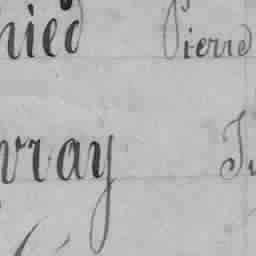 nied Pierre
vray Ju